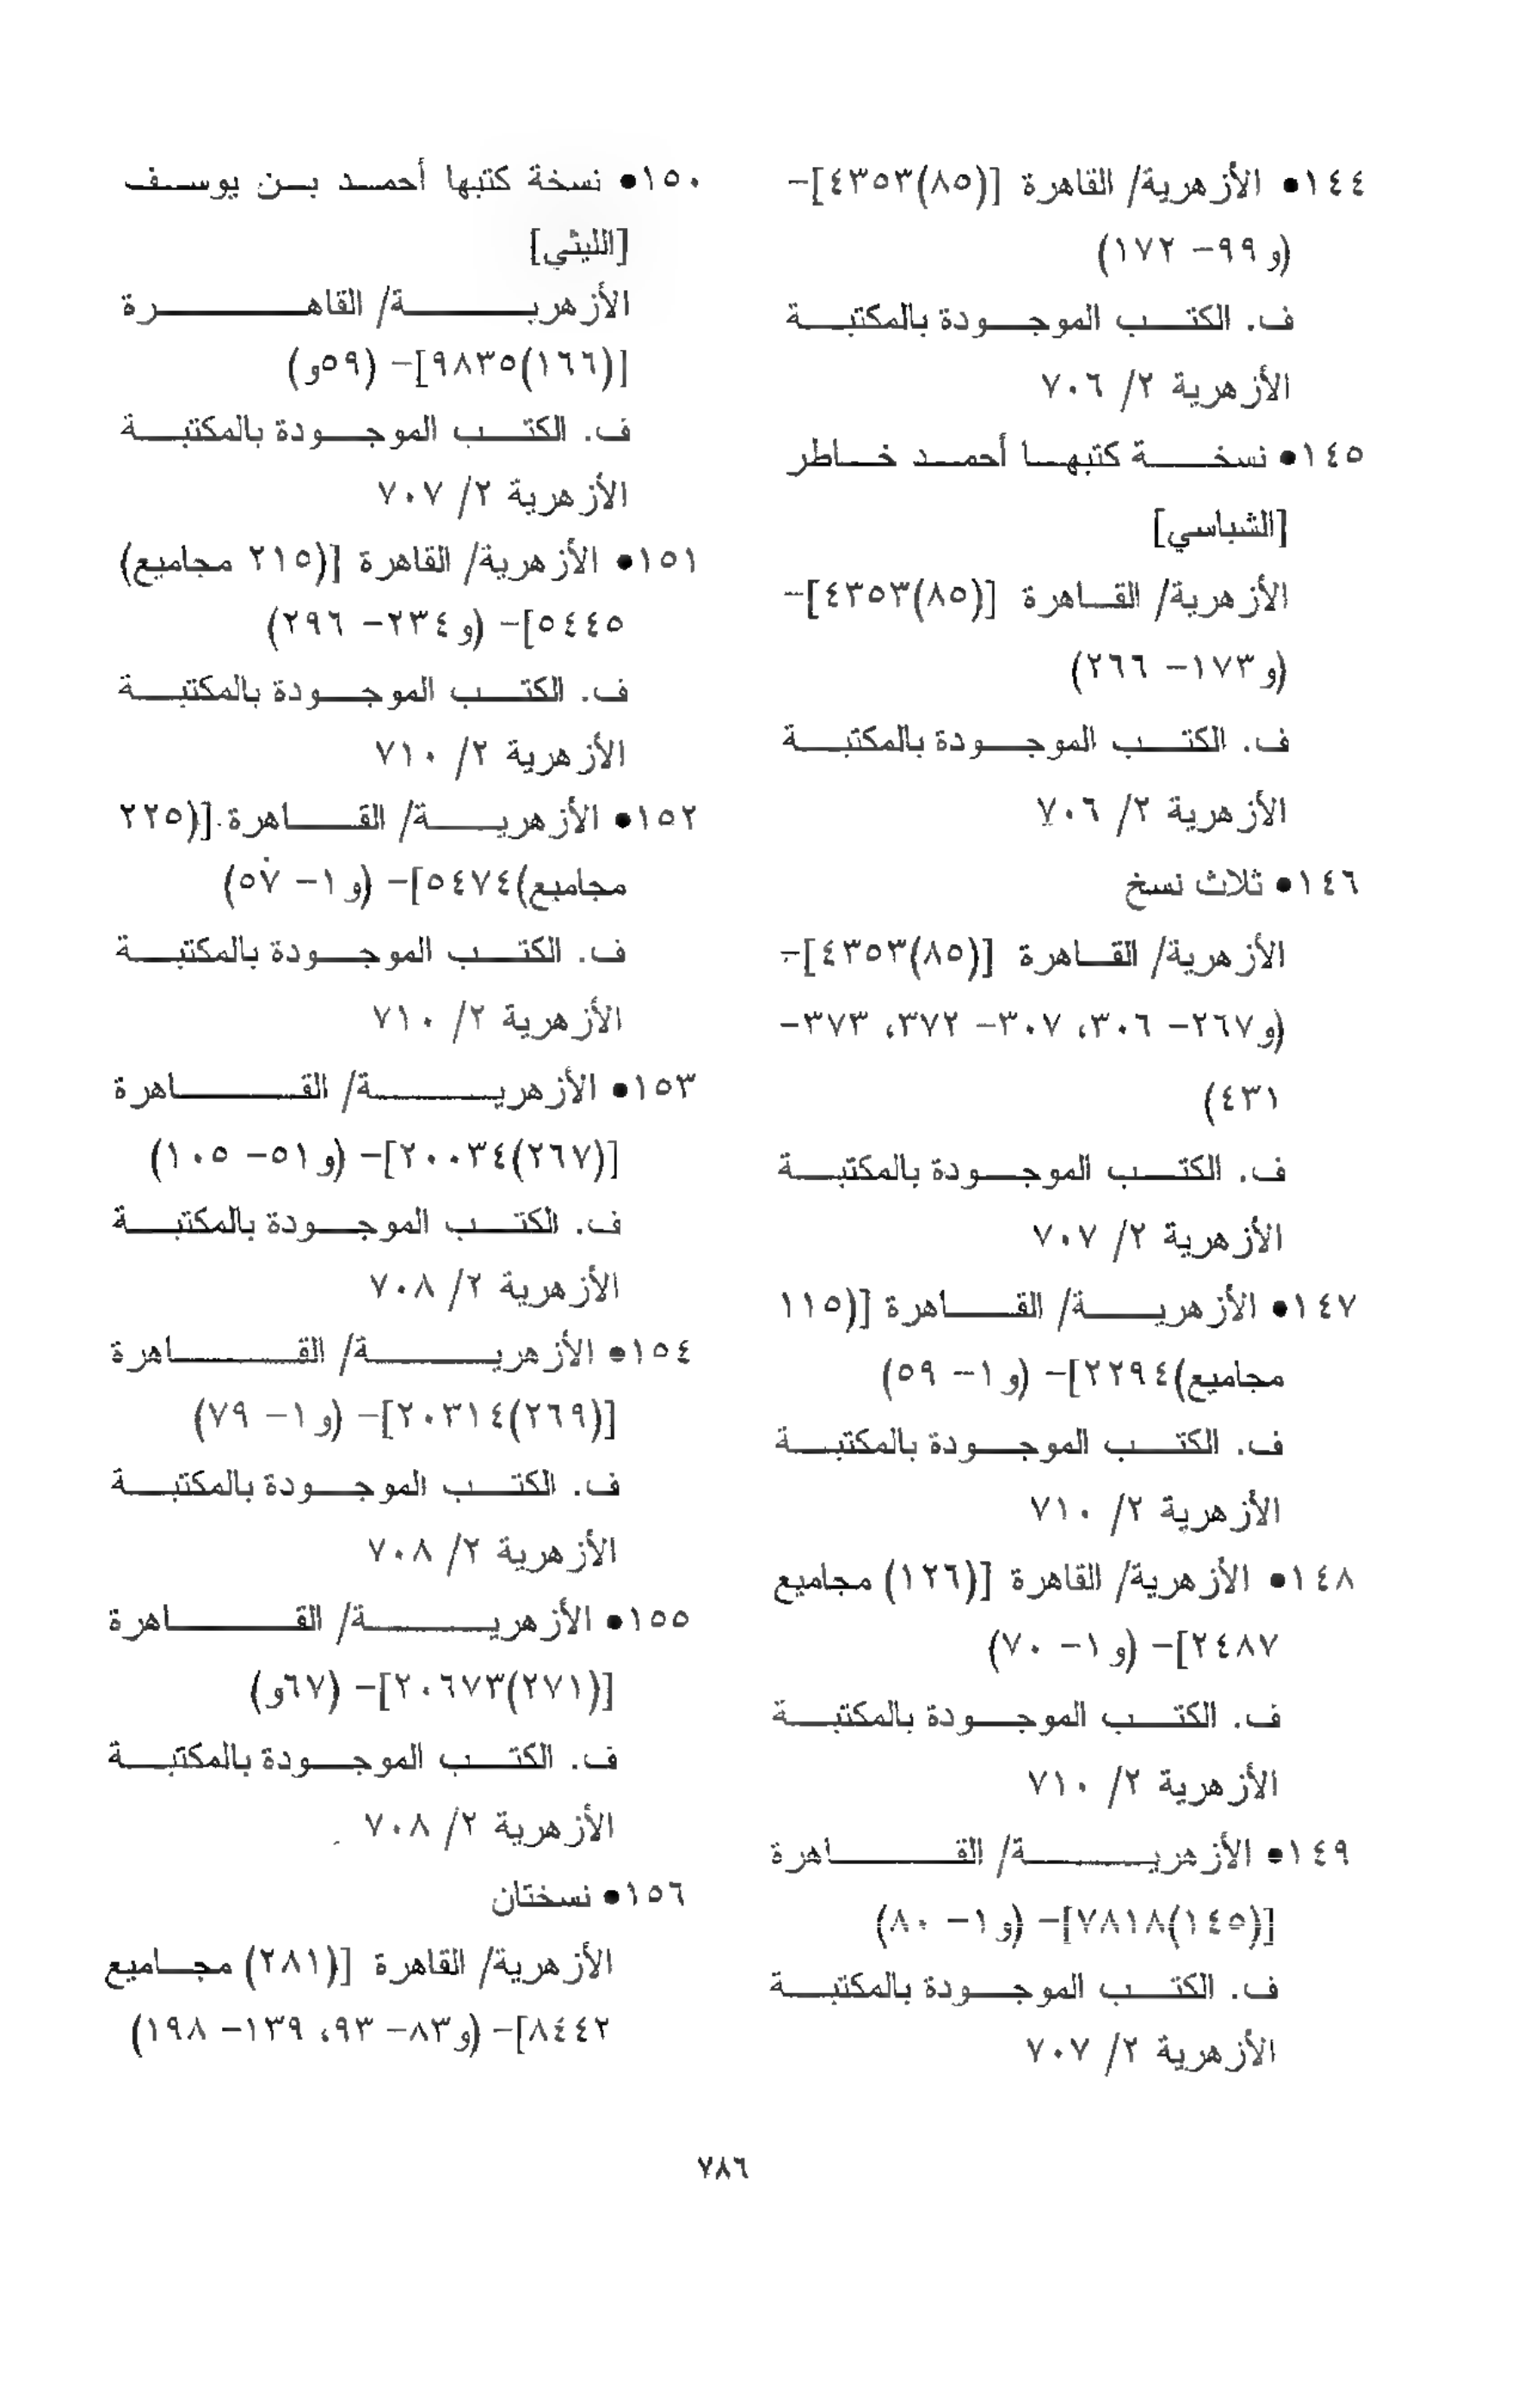 ١٤٤● الأزهرية/ القاهرة [(٨٥)٤٣٥٣]-
(و٩٩- ١٧٢)
ف. الكتب الموجودة بالمكتبة
الأزهرية ٢/ ٧٠٦
١٤٥● نسخة كتبها أحمد خاطر
[الشباسي]
الأزهرية/ القاهرة [(٨٥)٤٣٥٣]-
(و١٧٣- ٢٦٦)
ف. الكتب الموجودة بالمكتبة
الأزهرية ٢/ ٧٠٦
١٤٦● ثلاث نسخ
الأزهرية/ القاهرة [(٨٥)٤٣٥٣]-
(و٢٦٧- ٣٠٦، ٣٠٧- ٣٧٢، ٣٧٣-
٤٣١)
ف. الكتب الموجودة بالمكتبة
الأزهرية ٢/ ٧٠٧
١٤٧● الأزهرية/ القاهرة [(١١٥
مجاميع)٢٢٩٤]- (و١- ٥٩)
ف. الكتب الموجودة بالمكتبة
الأزهرية ٢/ ٧١٠
١٤٨● الأزهرية/ القاهرة [(١٢٦) مجاميع
٢٤٨٧]- (و١- ٧٠)
ف. الكتب الموجودة بالمكتبة
الأزهرية ٢/ ٧١٠
١٤٩● الأزهرية/ القاهرة
[(١٤٥)٧٨١٨]- (و١- ٨٠)
ف. الكتب الموجودة بالمكتبة
الأزهرية ٢/ ٧٠٧
١٥٠● نسخة كتبها أحمد بن يوسف
[الليثي]
الأزهرية/ القاهرة
[(١٦٦)٩٨٣٥]- (٥٩و)
ف. الكتب الموجودة بالمكتبة
الأزهرية ٢/ ٧٠٧
١٥١● الأزهرية/ القاهرة [(٢١٥ مجاميع)
٥٤٤٥]- (و٢٣٤- ٢٩٦)
ف. الكتب الموجودة بالمكتبة
الأزهرية ٢/ ٧١٠
١٥٢● الأزهرية/ القاهرة [(٢٢٥
مجاميع)٥٤٧٤]- (و١- ٥٧)
ف. الكتب الموجودة بالمكتبة
الأزهرية ٢/ ٧١٠
١٥٣● الأزهرية/ القاهرة
[(٢٦٧)٢٠٠٣٤]- (و٥١- ١٠٥)
ف. الكتب الموجودة بالمكتبة
الأزهرية ٢/ ٧٠٨
١٥٤● الأزهرية/ القاهرة
[(٢٦٩)٢٠٣١٤]- (و١- ٧٩)
ف. الكتب الموجودة بالمكتبة
الأزهرية ٢/ ٧٠٨
١٥٥● الأزهرية/ القاهرة
[(٢٧١)٢٠٦٧٣]- (٦٧و)
ف. الكتب الموجودة بالمكتبة
الأزهرية ٢/ ٧٠٨
١٥٦● نسختان
الأزهرية/ القاهرة [(٢٨١) مجاميع
٨٤٤٢]- (و٨٣- ٩٣، ١٣٩- ١٩٨)
٧٨٦